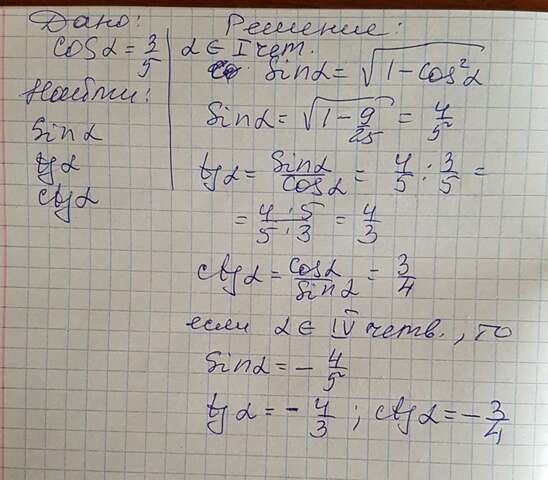 Дано:
cosα = 3/5
Найти:
Sinα
tgα
ctgα
Решение:
α ∈ I чет.
Sinα = √(1 - cos²α)
Sinα = √(1 - 9/25) = 4/5
tgα = Sinα/cosα = 4/5 : 3/5 =
= 4·5/5·3 = 4/3
ctgα = cosα/Sinα = 3/4
если α ∈ IV четв., то
Sinα = - 4/5
tgα = - 4/3 ; ctgα = - 3/4